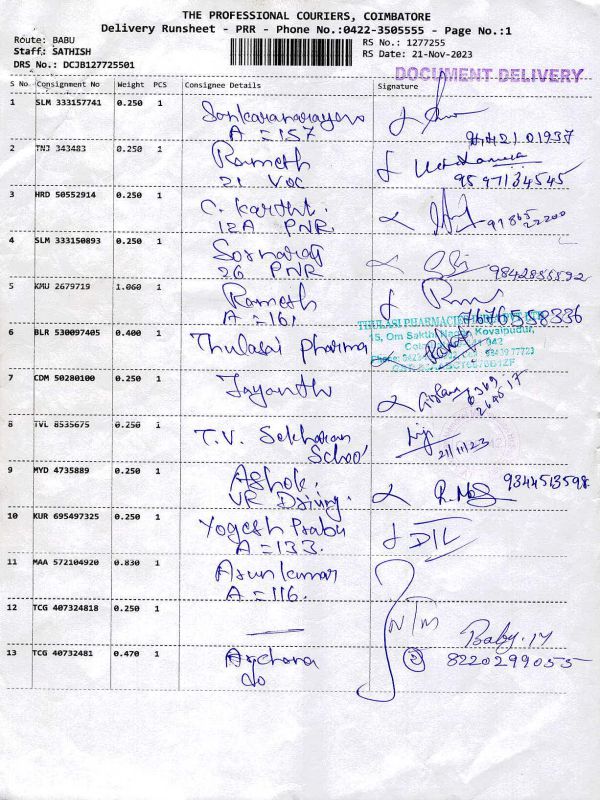 THE PROFESSIONAL COURIERS, COIMBATORE
Delivery Runsheet - PRR - Phone No.:0422-3505555 - Page No.:1
Route: BABU
RS No.: 1277255
Staff.: SATHISH
RS Date: 21-Nov-2023
DRS No.: DCJB127725501
DOCUMENT DELIVERY
S No Consignment No Weight PCS Consignee Details Signature
1 SLM 333157741 0.250 1
A = 157
2 TNJ 343483 0.250 1 Ramesh
21 VOC 9597134545
3 HRD 50552914 0.250 1 C. Karthi.
12A PNR 91865
22200
4 SLM 333150893 0.250 1
26 PNR 9842856592
5 KMU 2679719 1.060 1 Ramesh
A = 161 7676538336
6 BLR 530097405 0.400 1 Thulasai pharma
THULASI PHARMACIES
15, Om Sakthi Nagar, Kovaipudur,
7 CDM 50280100 0.250 1 Jayanthi
8 TVL 8535675 0.250 1 T.V. Sekharan
School 21/11/23
9 MYD 4735889 0.250 1 Ashok.
VR Driving. 9344513598
10 KUR 695497325 0.250 1 Yogesh Prabu
A = 133.
11 MAA 572104920 0.830 1 Arunkumar
A = 116.
12 TCG 407324818 0.250 1
13 TCG 40732481 0.470 1 Archana
do
Baby. M
② 8220299055